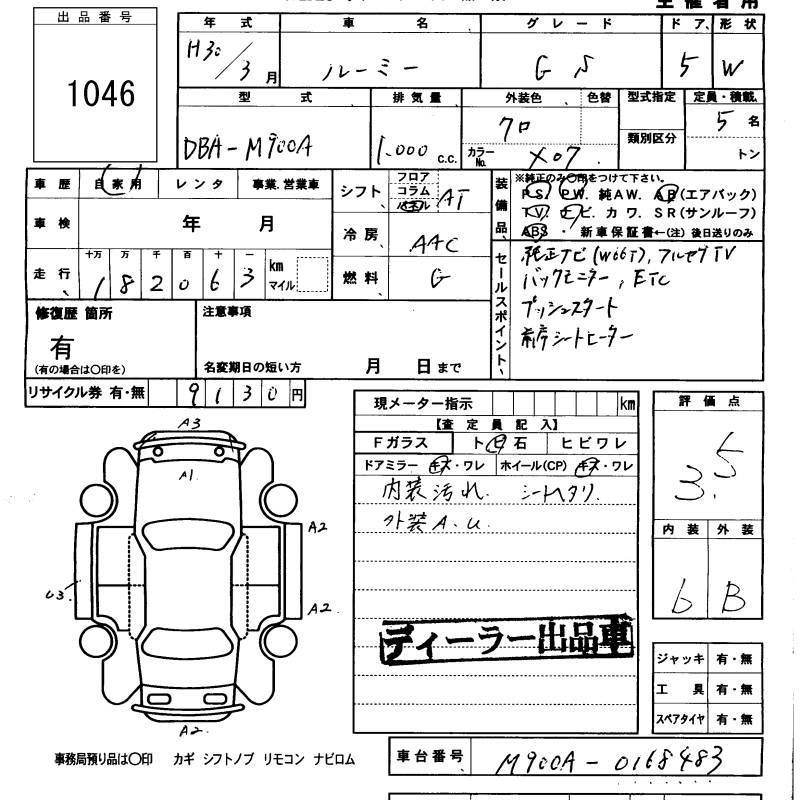 主催者用
出品番号
1046
年式 車名 グレード ドア 形状
H30/3月 ルーミー G S 5 W
型式 排気量 外装色 色替 型式指定 定員・積載
DBA-M900A 1.000 c.c. クロ 類別区分 5名
カラーNo. X07 トン
車歴 自家用 レンタ 事業.営業車
車検 年 月
走行 十万 万 千 百 十 一 km マイル
1 8 2 0 6 3
シフト フロア コラム パネル AT
冷房 AAC
燃料 G
装備品 ※純正のみ〇印をつけて下さい。
P.S. P.W. 純A.W. A.B(エアバック)
TV. ナビ. カワ. SR(サンルーフ)
ABS ・ 新車保証書←(注) 後日送りのみ
セールスポイント
純正ナビ(W66T), フルセグTV
バックモニター, ETC
プッシュスタート
前席シートヒーター
修復歴 箇所
有
(有の場合は〇印を)
注意事項
名変期日の短い方 月 日まで
リサイクル券 有・無 9130円
現メーター指示 km
【査定員記入】
Fガラス ト 石 ヒビワレ
ドアミラー キズ・ワレ ホイール(CP) キズ・ワレ
内装汚れ. シートヘタリ.
外装A.U.
ディーラー出品車
評価点
3.5
内装 外装
b B
A3
A1
A2
U3
A2
A2
ジャッキ 有・無
工具 有・無
スペアタイヤ 有・無
事務局預り品は〇印 カギ シフトノブ リモコン ナビロム
車台番号 M900A-0168483